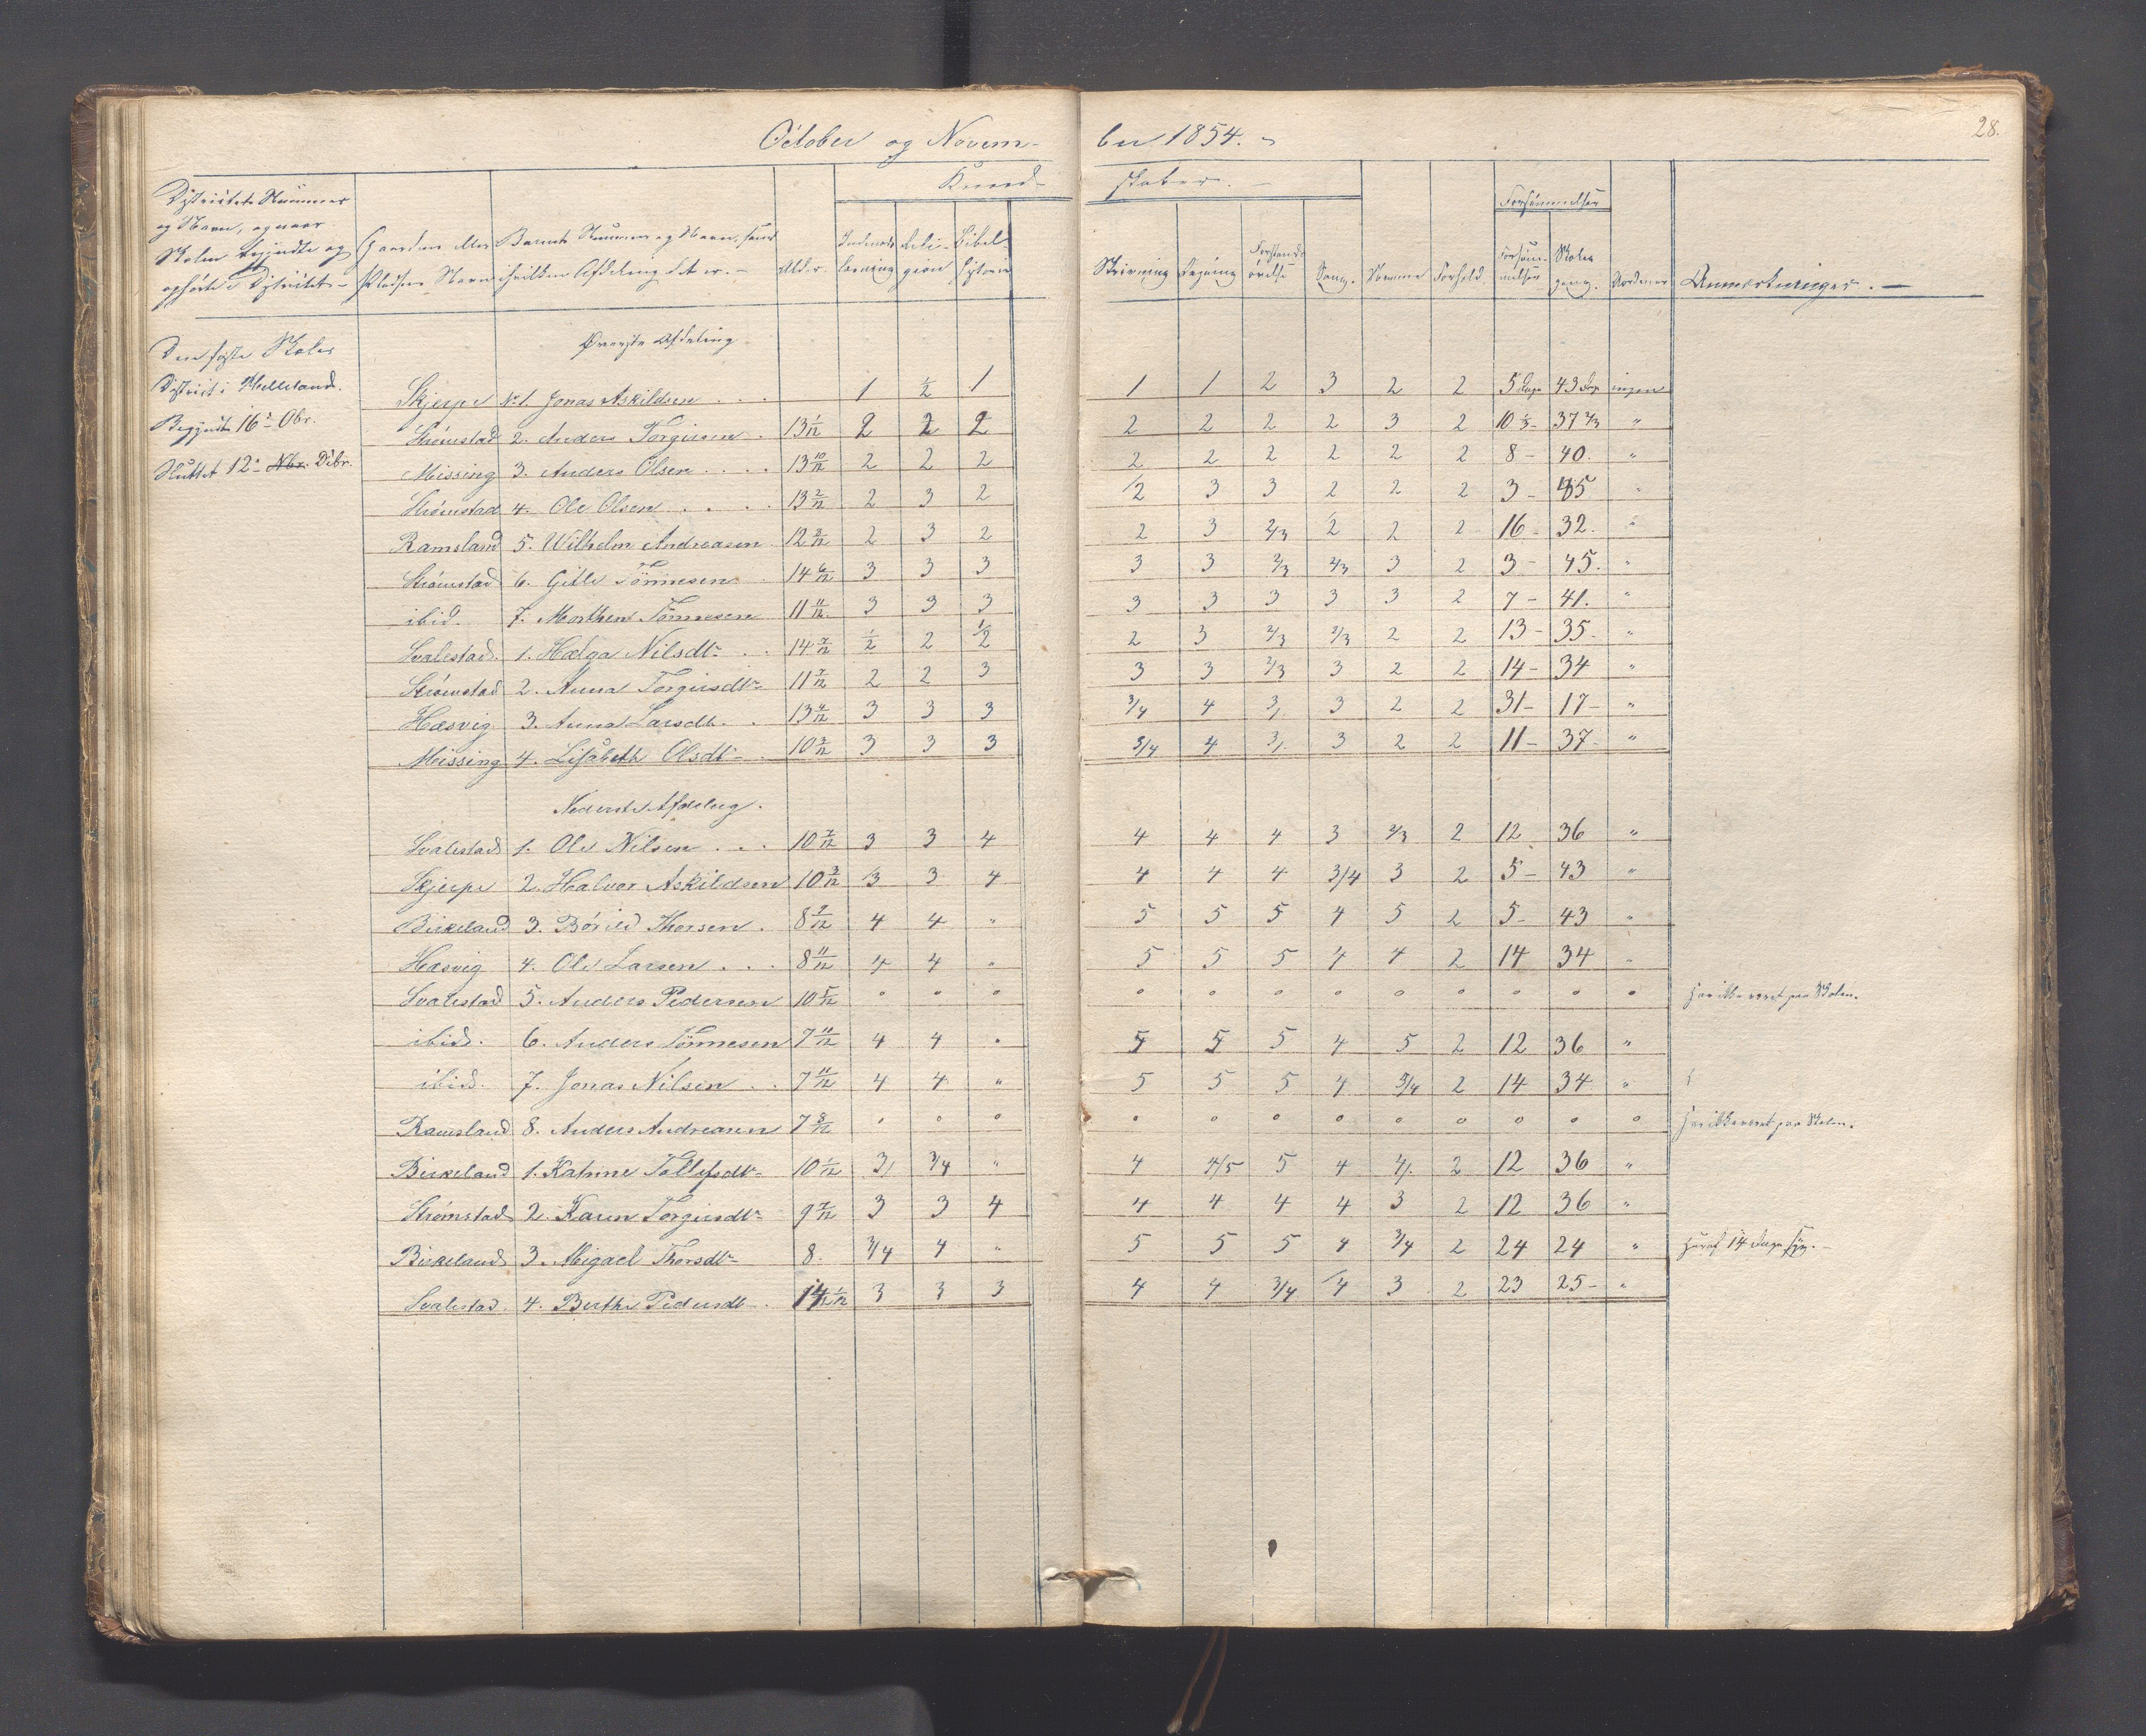 28.
October og November 1854.
Kundskaber.
Districtets Nummer og Navn, og naar Skolen begyndte og ophørte i Districtet. Gaardens eller Pladsens Navn Barnets Nummer og Navn, samt i hvilken Afdeling det er. Alder. Indenadslæsning Religion Bibelhistorie Skrivning Regning Forstandsøvelse Sang. Nemme Forhold. Forsømmelser Forsømmelser Skolegang. Anmærkninger.
Øverste Afdeling
Den første Skoledistrict i Helleland.
Begyndt 16de Obr.
Sluttet 12te Nbr. Dcbr.
Skjerpe No 1. Jonas Askildsen 1 1/2 1 1 1 2 3 2 2 5 Dage 43 Dage ingen
Strømstad 2. Anders Torgirsen 13 1/12 2 2 2 2 2 2 2 3 2 10 1/3 - 37 2/3 "
Missing 3. Anders Olsen 13 10/12 2 2 2 2 2 2 2 2 2 8 - 40. "
Strømstad 4. Ole Olsen 13 2/12 2 3 2 1/2 3 3 2 2 2 3 - 45 "
Ramsland 5. Wilhelm Andreasen 12 2/12 2 3 2 2 3 2/3 2 2 2 16 - 32. "
Strømstad 6. Gitle Tönnesen 14 6/12 3 3 3 3 3 2/3 2/3 3 2 3 - 45. "
ibid. 7. Morthen Tönnesen 11 11/12 3 3 3 3 3 3 3 3 2 7 - 41. "
Svalestad. 1. Helga Nilsdtr 14 7/12 1/2 2 1/2 2 3 2/3 2/3 2 2 13 - 35. "
Strømstad 2. Anna Torgirsdtr 11 7/12 2 2 3 3 3 2/3 3 2 2 14 - 34 "
Hæsvig 3. Anna Larsdtr. 13 4/12 3 3 3 3/4 4 3/ 3 2 2 31 - 17 - "
Missing 4. Lisabeth Olsdtr 10 3/12 3 3 3 3/4 4 3/ 3 2 2 11 - 37 - "
Nederste Afdeling.
Svalestad 1. Ole Nilsen 10 7/12 3 3 4 4 4 4 3 2/3 2 12 36 "
Skjerpe 2. Halvor Askildsen 10 3/12 3 3 4 4 4 4 3/4 3 2 5 - 43 "
Birkeland 3. Böried Thorsen 8 9/12 4 4 " 5 5 5 4 5 2 5 - 43 "
Hæsvig 4. Ole Larsen 8 11/12 4 4 " 5 5 5 4 4 2 14 34 "
Svalestad 5. Anders Pedersen 10 5/12 " " " " " " " " " " " " Har ikke været paa Skolen.
ibid. 6. Anders Tönnesen 7 11/12 4 4 " 5 5 5 4 5 2 12 36 "
ibid. 7. Jonas Nilsen 7 11/12 4 4 " 5 5 5 4 3/4 2 14 34 "
Ramsland 8. Anders Andreasen 7 8/12 " " " " " " " " " " " " Har ikke været paa Skolen.
Birkeland 1. Katrine Tollefsdtr 10 1/12 3/ 3/4 " 4 4/5 5 4 4/. 2 12 36 "
Strømstad 2. Karen Torgirsdtr 9 7/12 3 3 4 4 4 4 4 3 2 12 36 "
Birkeland 3. Abigael Thorsdtr 8. 3/4 4 " 5 5 5 4 3/4 2 24 24 " Heraf 14 Dage syg.
Svalestad. 4. Berthe Pedersdtr 14 1/12 3 3 3 4 4 3/4 4 3 2 23 25 - "